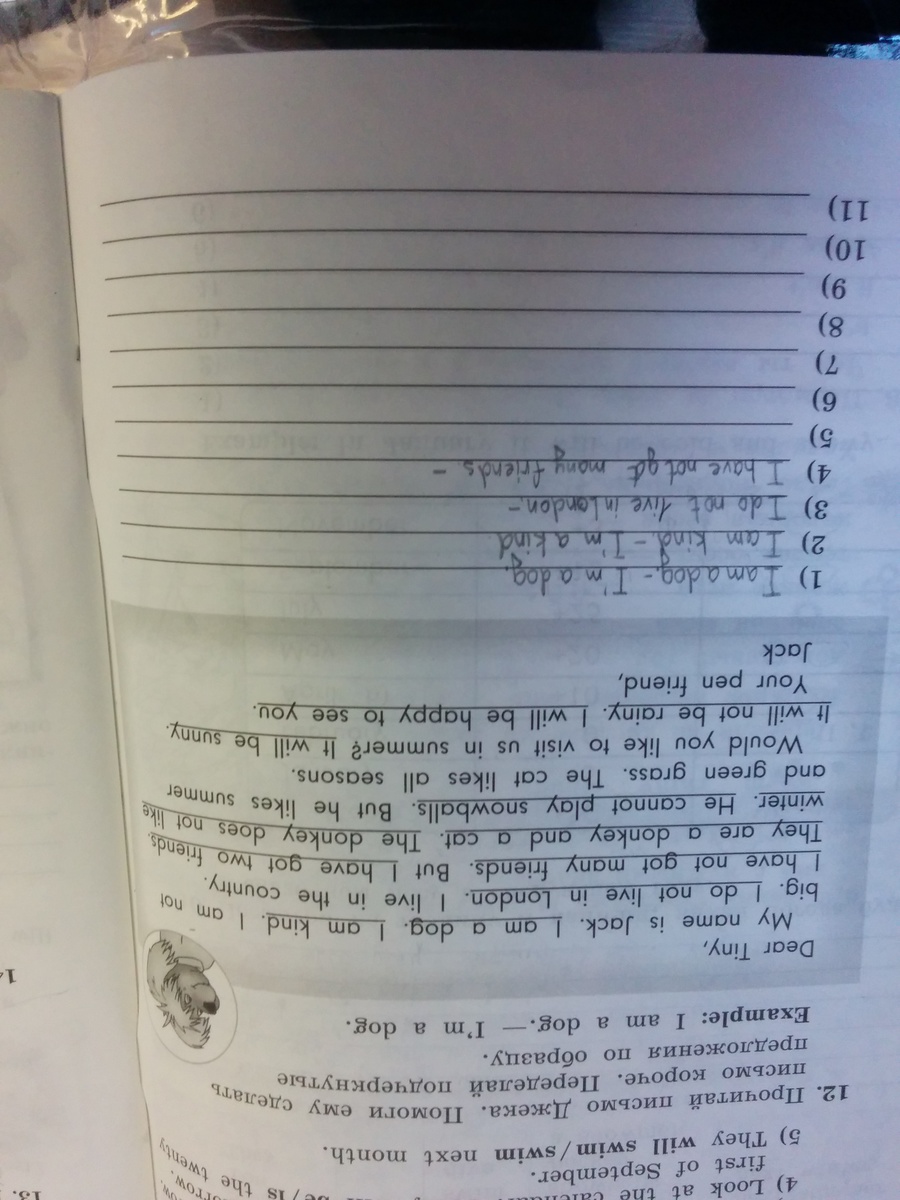 4) Look at the calendar.
first of September.
5) They will swim/swim next month.
be/is the twenty
13.
14
12. Прочитай письмо Джека. Помоги ему сделать
письмо короче. Переделай подчеркнутые
предложения по образцу.
Example: I am a dog.— I'm a dog.
Dear Tiny,
My name is Jack. I am a dog. I am kind. I am not
big. I do not live in London. I live in the country.
I have not got many friends. But I have got two friends.
They are a donkey and a cat. The donkey does not like
winter. He cannot play snowballs. But he likes summer
and green grass. The cat likes all seasons.
Would you like to visit us in summer? It will be sunny.
It will not be rainy. I will be happy to see you.
Your pen friend,
Jack
1) I am a dog. - I'm a dog.
2) I am kind. - I'm a kind.
3) I do not live in London. -
4) I have not got many friends. -
5)
6)
7)
8)
9)
10)
11)